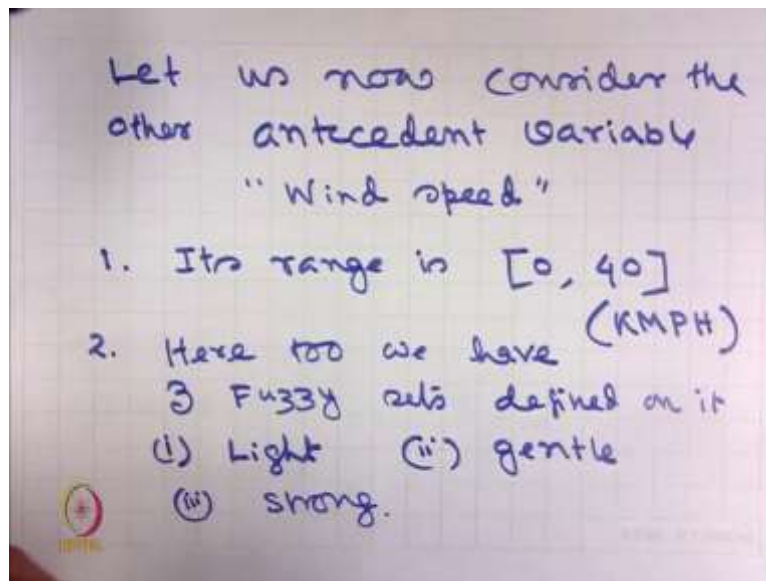 Let us now consider the
other antecedent variable
"Wind speed"
1. Its range is [0, 40]
(KMPH)
2. Here too we have
3 Fuzzy sets defined on it
(i) Light (ii) gentle
(iii) strong.